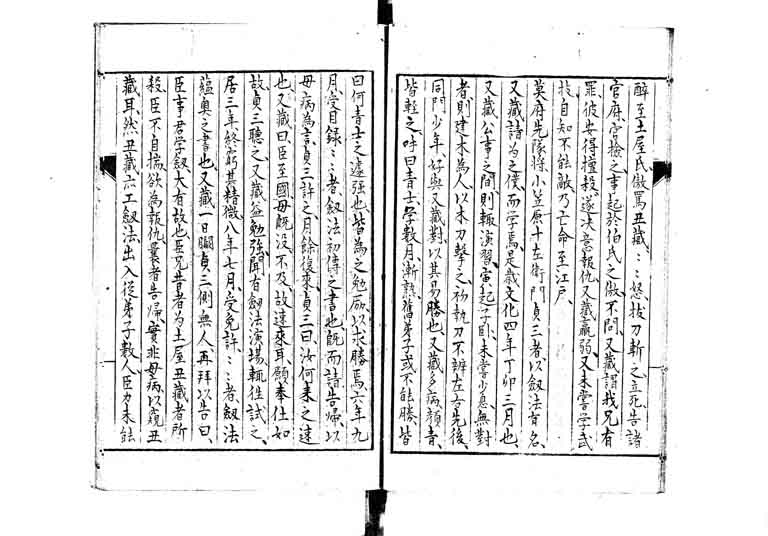 醉至土屋氏、傲罵丑藏、〻〻怒拔刀斬之立死、告諸
官府、官檢之、事起於伯氏之傲、不問、又藏謂我兄有
罪、彼安得擅殺、遂决意報仇、又藏羸弱、又未嘗学武
技、自知不能敵、乃亡命至江戶、
幕府先隊将小笠原十左衛門貞三者以劔法有名、
又藏請為之僕、而学焉、是歳文化四年丁卯三月也、
又藏公事之間、則輙演習、寅起子臥、未嘗少息、無對
者則建木為人、以木刀擊之、初執刀不辨左右先後、
同門少年好與又藏對、以其易勝也、又藏多病顔青、
皆軽之、呼曰青士、学數月、漸熟、舊弟子或不能勝、皆
曰何青士之遽强也、皆為之勉厲、以求勝焉、六年九
月、受目録、〻〻者、劔法初傳之書也、既而請告歸、以
母病為言、貞三許之、月餘復來、貞三曰、汝何来之速
也、又藏曰、臣至國、母既没、不及、故速來耳、願奉仕如
故、貞三聽之、又藏益勉強、聞有劔法演場、輙徃試之、
居三年、終窮其精微、八年七月、受免許、〻〻者、劔法
蘊奥之書也、又藏一日瞷貞三側無人、再拜以告曰、
臣事君学劔、大有故也、臣兄昔者為土屋丑藏者所
殺、臣不自揣、欲為報仇、曩者告歸、實非母病、以窺丑
藏耳、然丑藏亦工劔法、出入從弟子數人、臣力未能